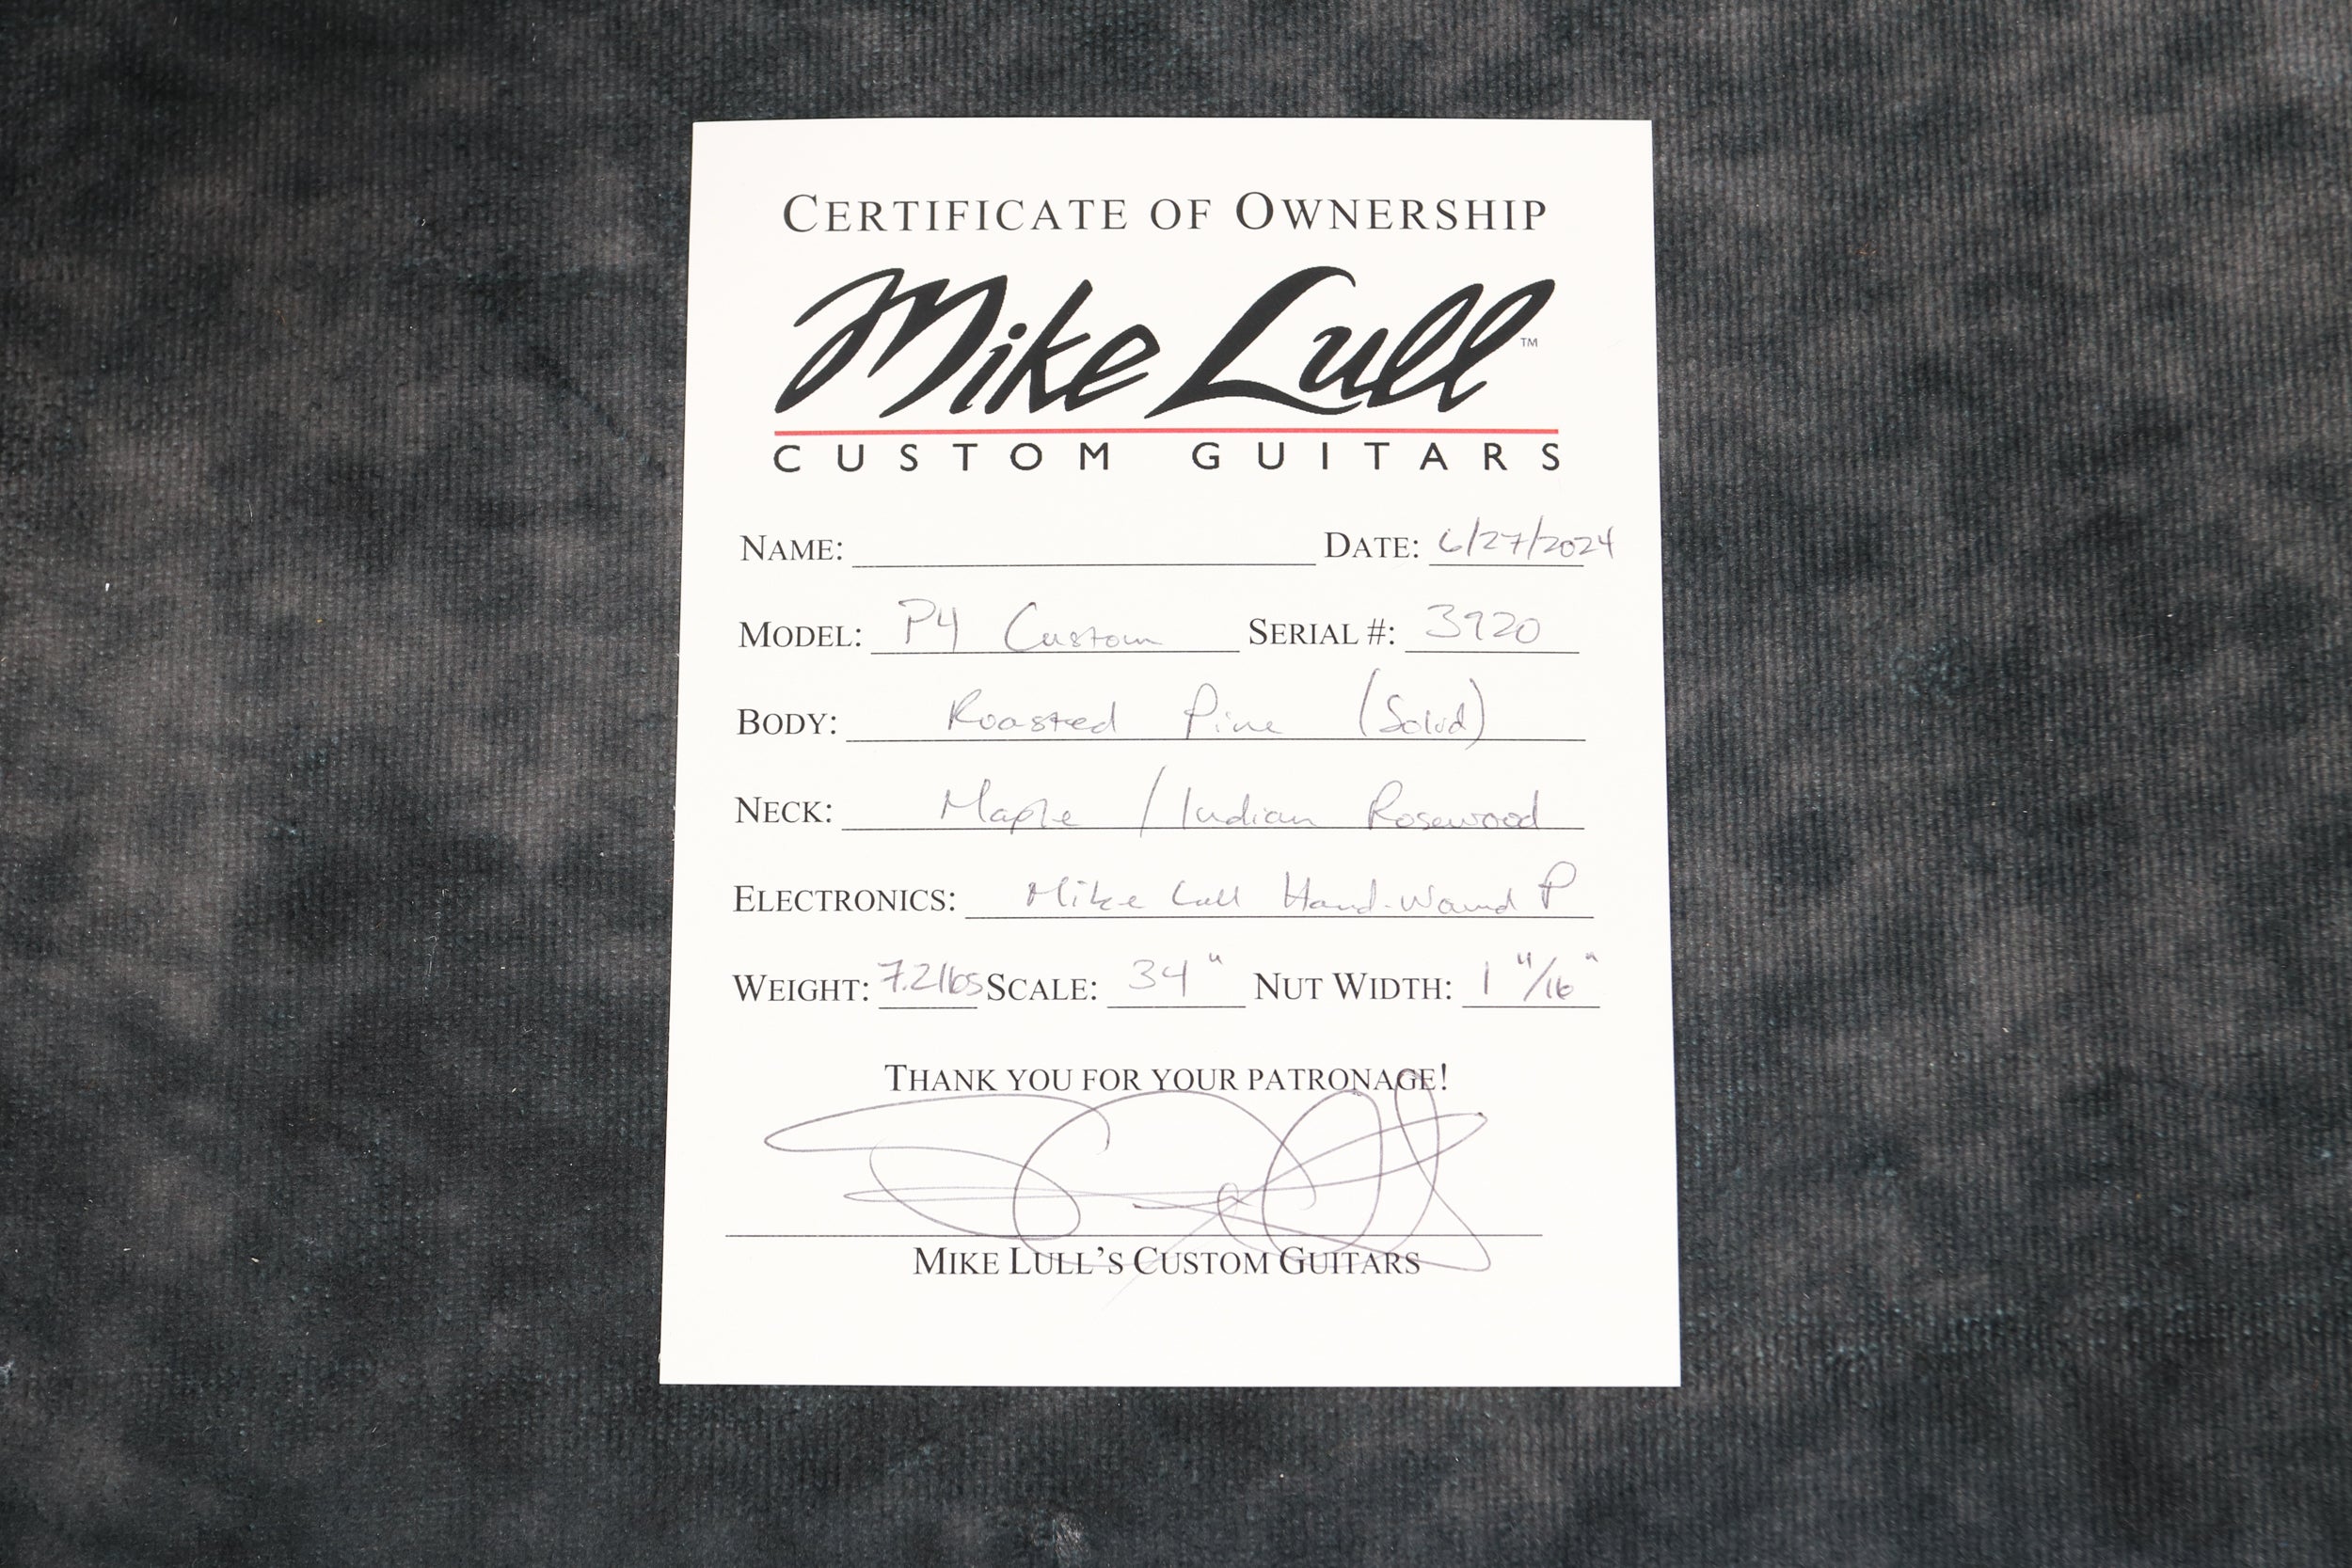 CERTIFICATE OF OWNERSHIP
Mike Lull™
CUSTOM GUITARS
NAME: DATE: 6/27/2024
MODEL: P4 Custom SERIAL #: 3920
BODY: Roasted Pine (Solid)
NECK: Maple / Indian Rosewood
ELECTRONICS: Mike Lull Hand-Wound P
WEIGHT: 7.2lbs SCALE: 34" NUT WIDTH: 1 11/16"
THANK YOU FOR YOUR PATRONAGE!
MIKE LULL'S CUSTOM GUITARS